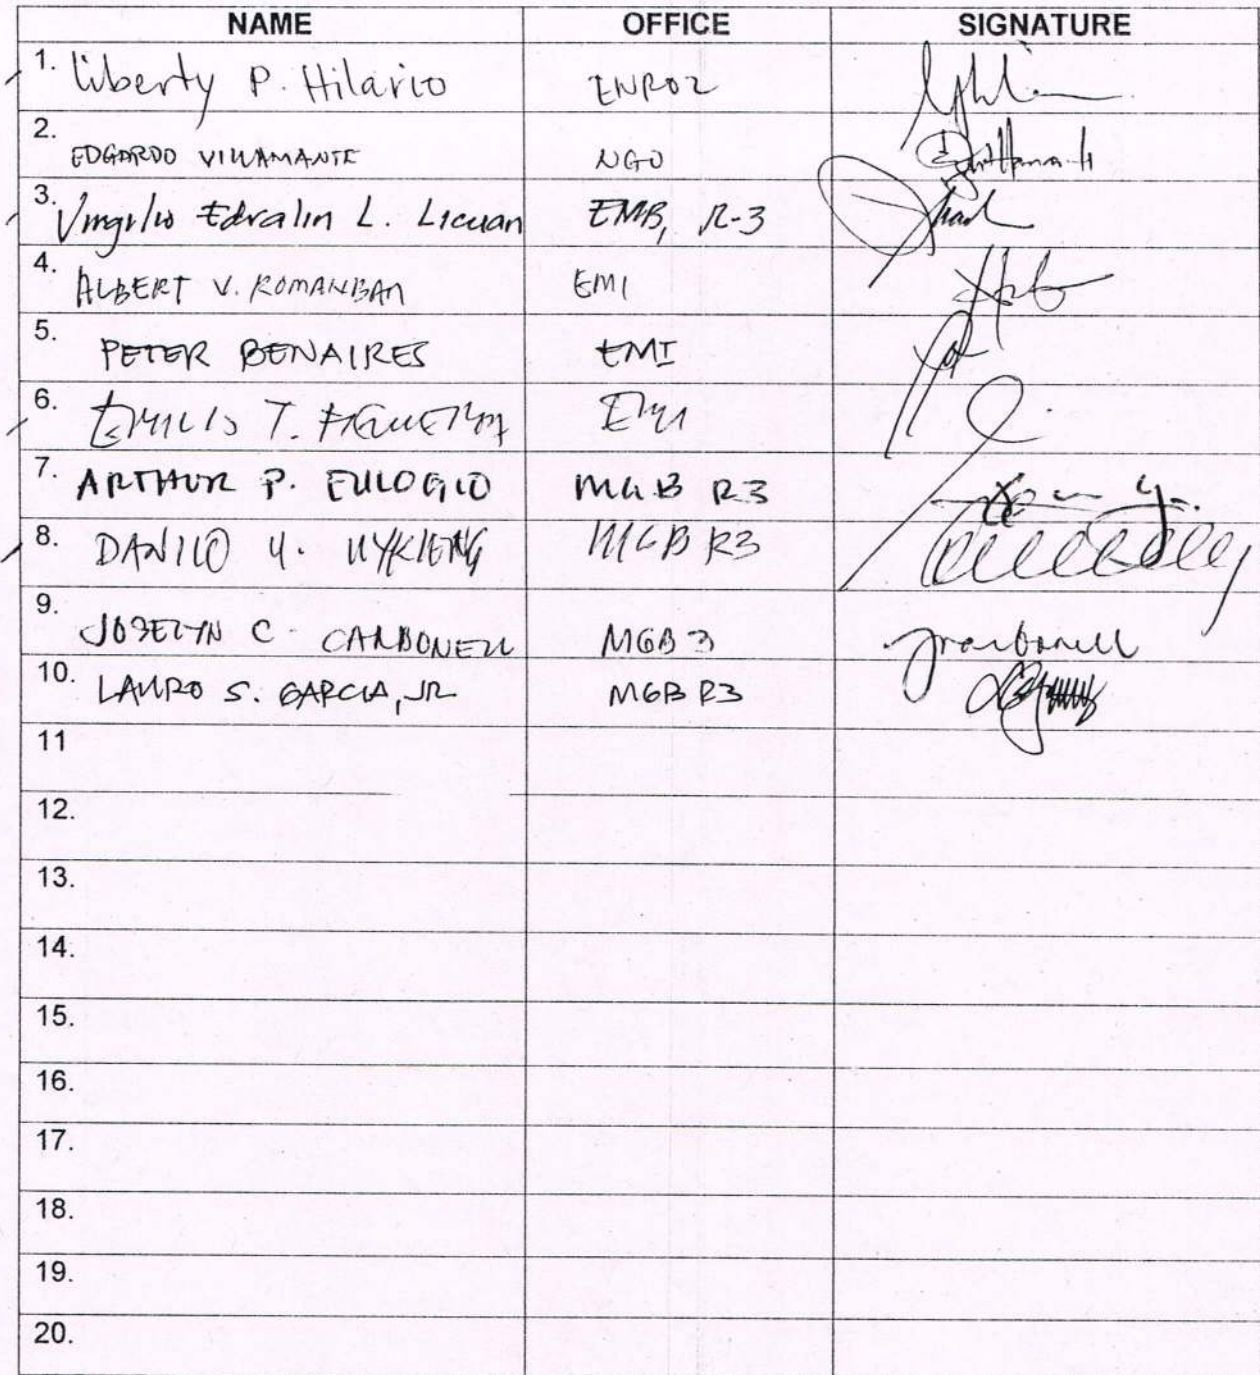 NAME OFFICE SIGNATURE
1. Liberty P. Hilario ENROZ
2. EDGARDO VILLAMANTE NGO
3. Virgilio Edralin L. Licuan EMB, R-3
4. ALBERT V. ROMANBAN EMI
5. PETER BENAIRES EMI
6. EMILIO T. FIGUEROA EMI
7. ARTHUR P. EULOGIO MGB R3
8. DANILO U. UYKIENG MGB R3
9. JOSELYN C. CARBONELL MGB 3 jrcarbonell
10. LAURO S. GARCIA, JR MGB R3
11
12.
13.
14.
15.
16.
17.
18.
19.
20.